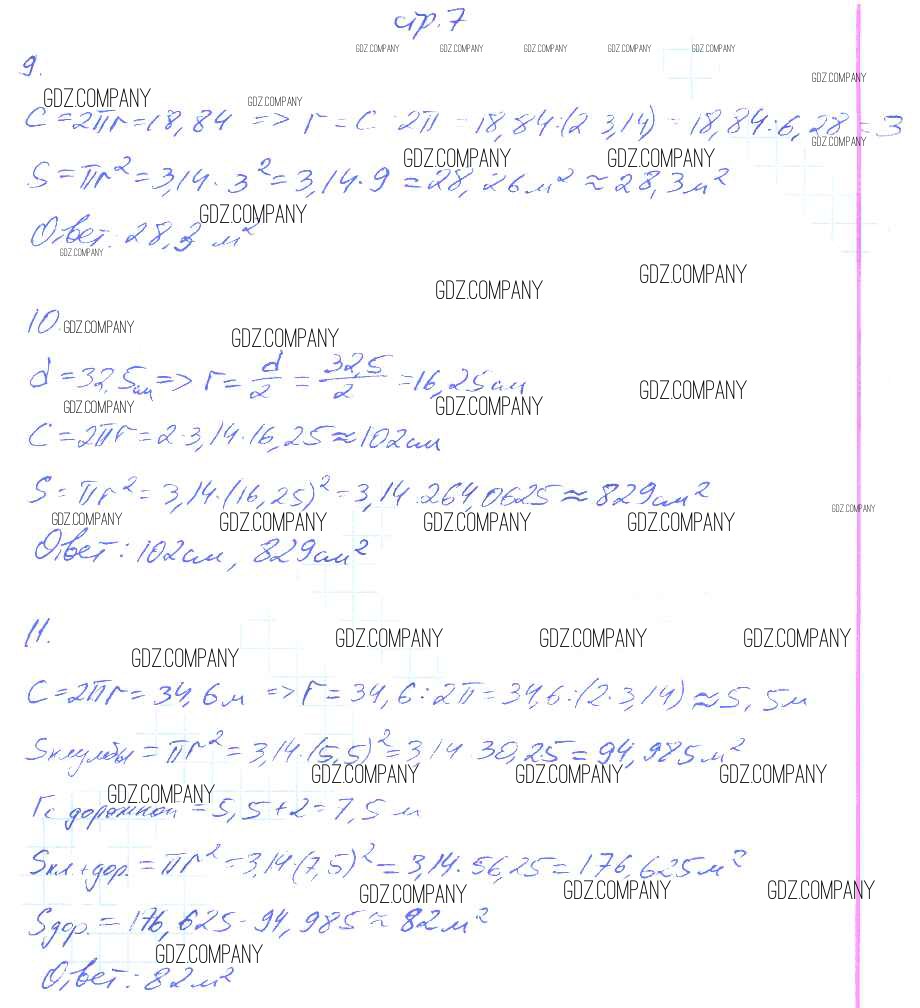 стр. 7
GDZ.COMPANY GDZ.COMPANY GDZ.COMPANY GDZ.COMPANY GDZ.COMPANY
9.
GDZ.COMPANY
GDZ.COMPANY GDZ.COMPANY
C = 2πr = 18,84 => r = C : 2π = 18,84 : (2 · 3,14) = 18,84 : 6,28 = 3
GDZ.COMPANY
GDZ.COMPANY GDZ.COMPANY
S = πr² = 3,14 · 3² = 3,14 · 9 = 28,26 м² ≈ 28,3 м²
GDZ.COMPANY
Ответ: 28,3 м²
GDZ.COMPANY
GDZ.COMPANY GDZ.COMPANY
10. GDZ.COMPANY
GDZ.COMPANY
d = 32,5 см => r = d/2 = 32,5/2 = 16,25 см
GDZ.COMPANY
GDZ.COMPANY GDZ.COMPANY
C = 2πr = 2 · 3,14 · 16,25 ≈ 102 см
S = πr² = 3,14 · (16,25)² = 3,14 · 264,0625 ≈ 829 см²
GDZ.COMPANY
GDZ.COMPANY GDZ.COMPANY GDZ.COMPANY GDZ.COMPANY
Ответ: 102 см, 829 см²
11.
GDZ.COMPANY GDZ.COMPANY GDZ.COMPANY
GDZ.COMPANY
C = 2πr = 34,6 м => r = 34,6 : 2π = 34,6 : (2 · 3,14) ≈ 5,5 м
S клумбы = πr² = 3,14 · (5,5)² = 3,14 · 30,25 = 94,985 м²
GDZ.COMPANY GDZ.COMPANY GDZ.COMPANY
GDZ.COMPANY
r с дорожкой = 5,5 + 2 = 7,5 м
S кл. + дор. = πr² = 3,14 · (7,5)² = 3,14 · 56,25 = 176,625 м²
GDZ.COMPANY GDZ.COMPANY GDZ.COMPANY
S дор. = 176,625 - 94,985 ≈ 82 м²
GDZ.COMPANY
Ответ: 82 м²